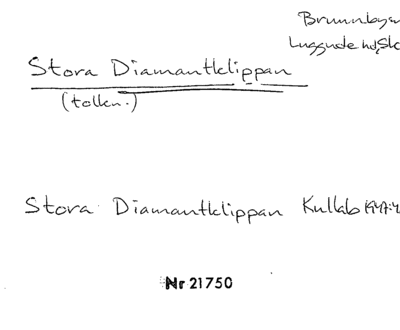 Brunnby sn
Luggude hd, Sk
Stora Diamantklippan
(tolkn.)
Stora Diamantklippan Kullab
Nr 21750